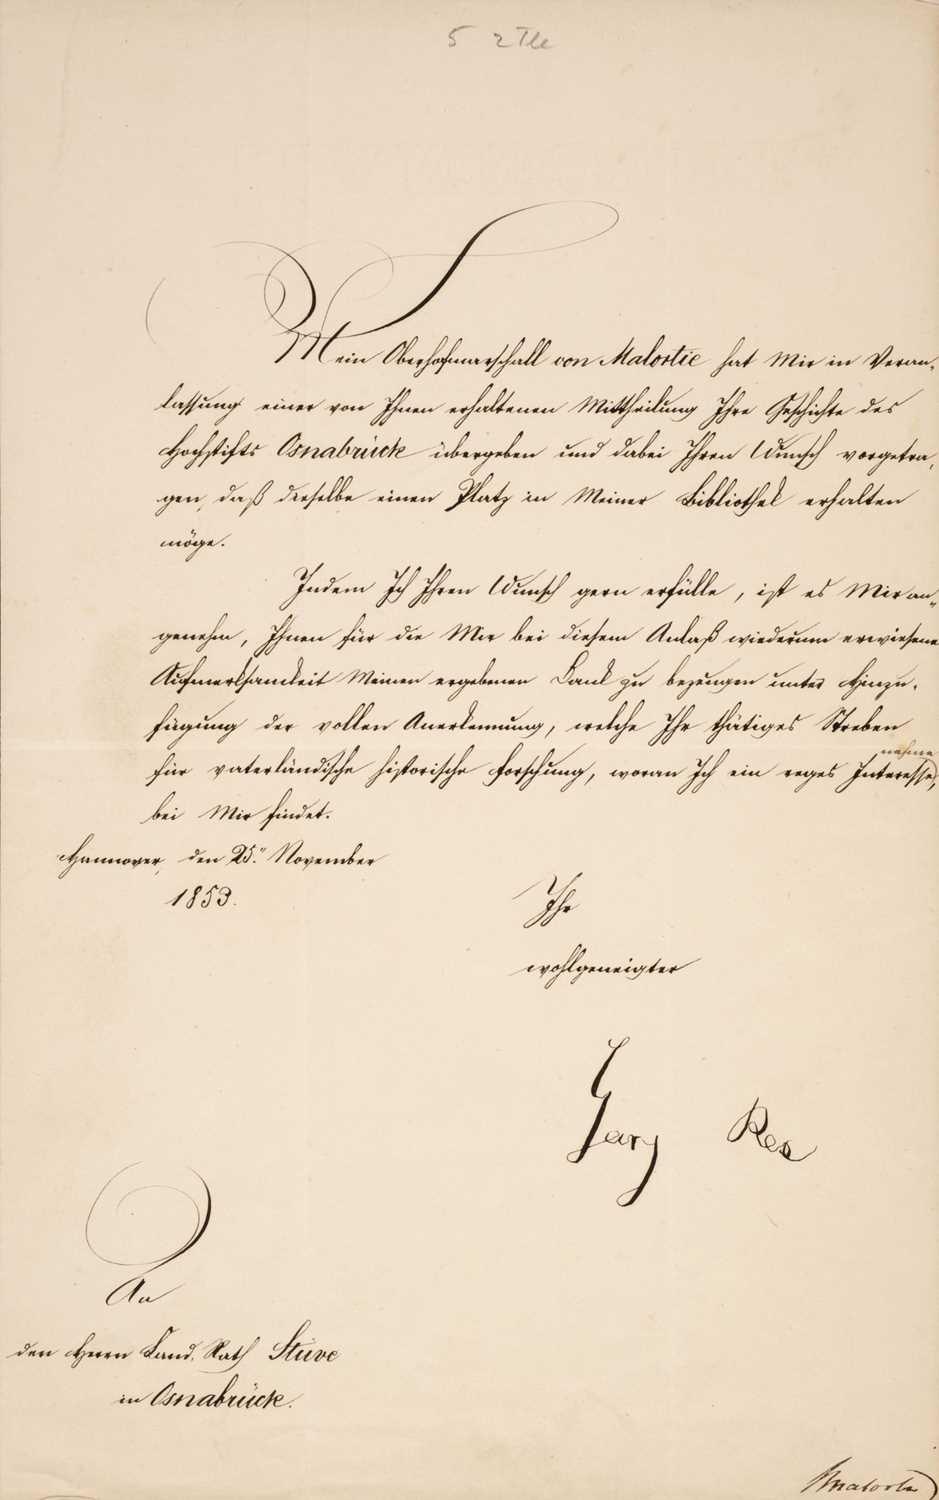 5 2 Tle
Mein Oberhofmarschall von Malortie hat Mir in Veran-
lassung einer von Ihnen erhaltenen Mittheilung Ihre Geschichte des
Hochstifts Osnabrück übergeben und dabei Ihren Wunsch vorgetra-
gen, daß dieselbe einen Platz in Meiner Bibliothek erhalten
möge.
Indem Ich Ihren Wunsch gern erfülle, ist es Mir an-
genehm, Ihnen für die Mir bei diesem Anlaß wiederum erwiesene
Aufmerksamkeit Meinen ergebenen Dank zu bezeugen unter Hinzu-
fügung der vollen Anerkennung, welche Ihr thätiges Streben
nehme
für vaterländische historische Forschung, woran Ich ein reges Interesse,
bei Mir findet.
Hannover, den 25. November
1853.
Ihr
wohlgeneigter
Georg Rex
An
den Herrn Land-Rath Stüve
in Osnabrück.
Malortie